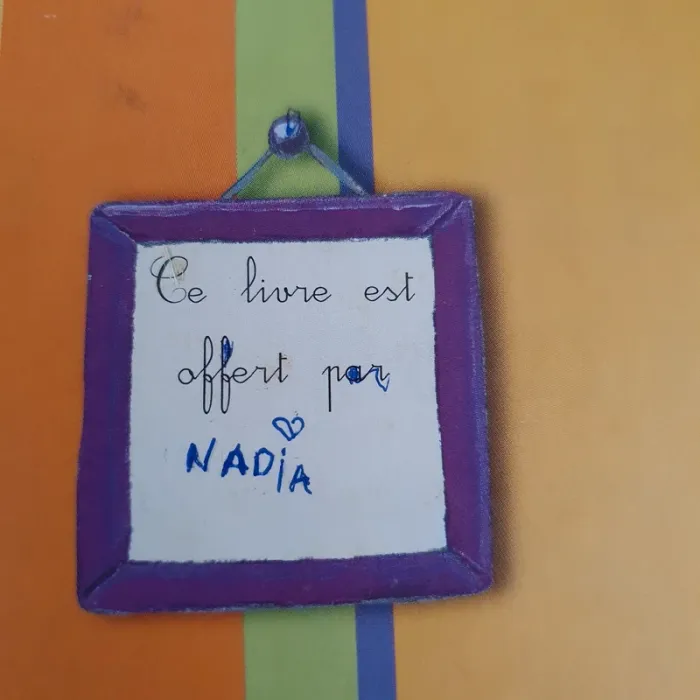 Ce livre est
offert par
NADiA